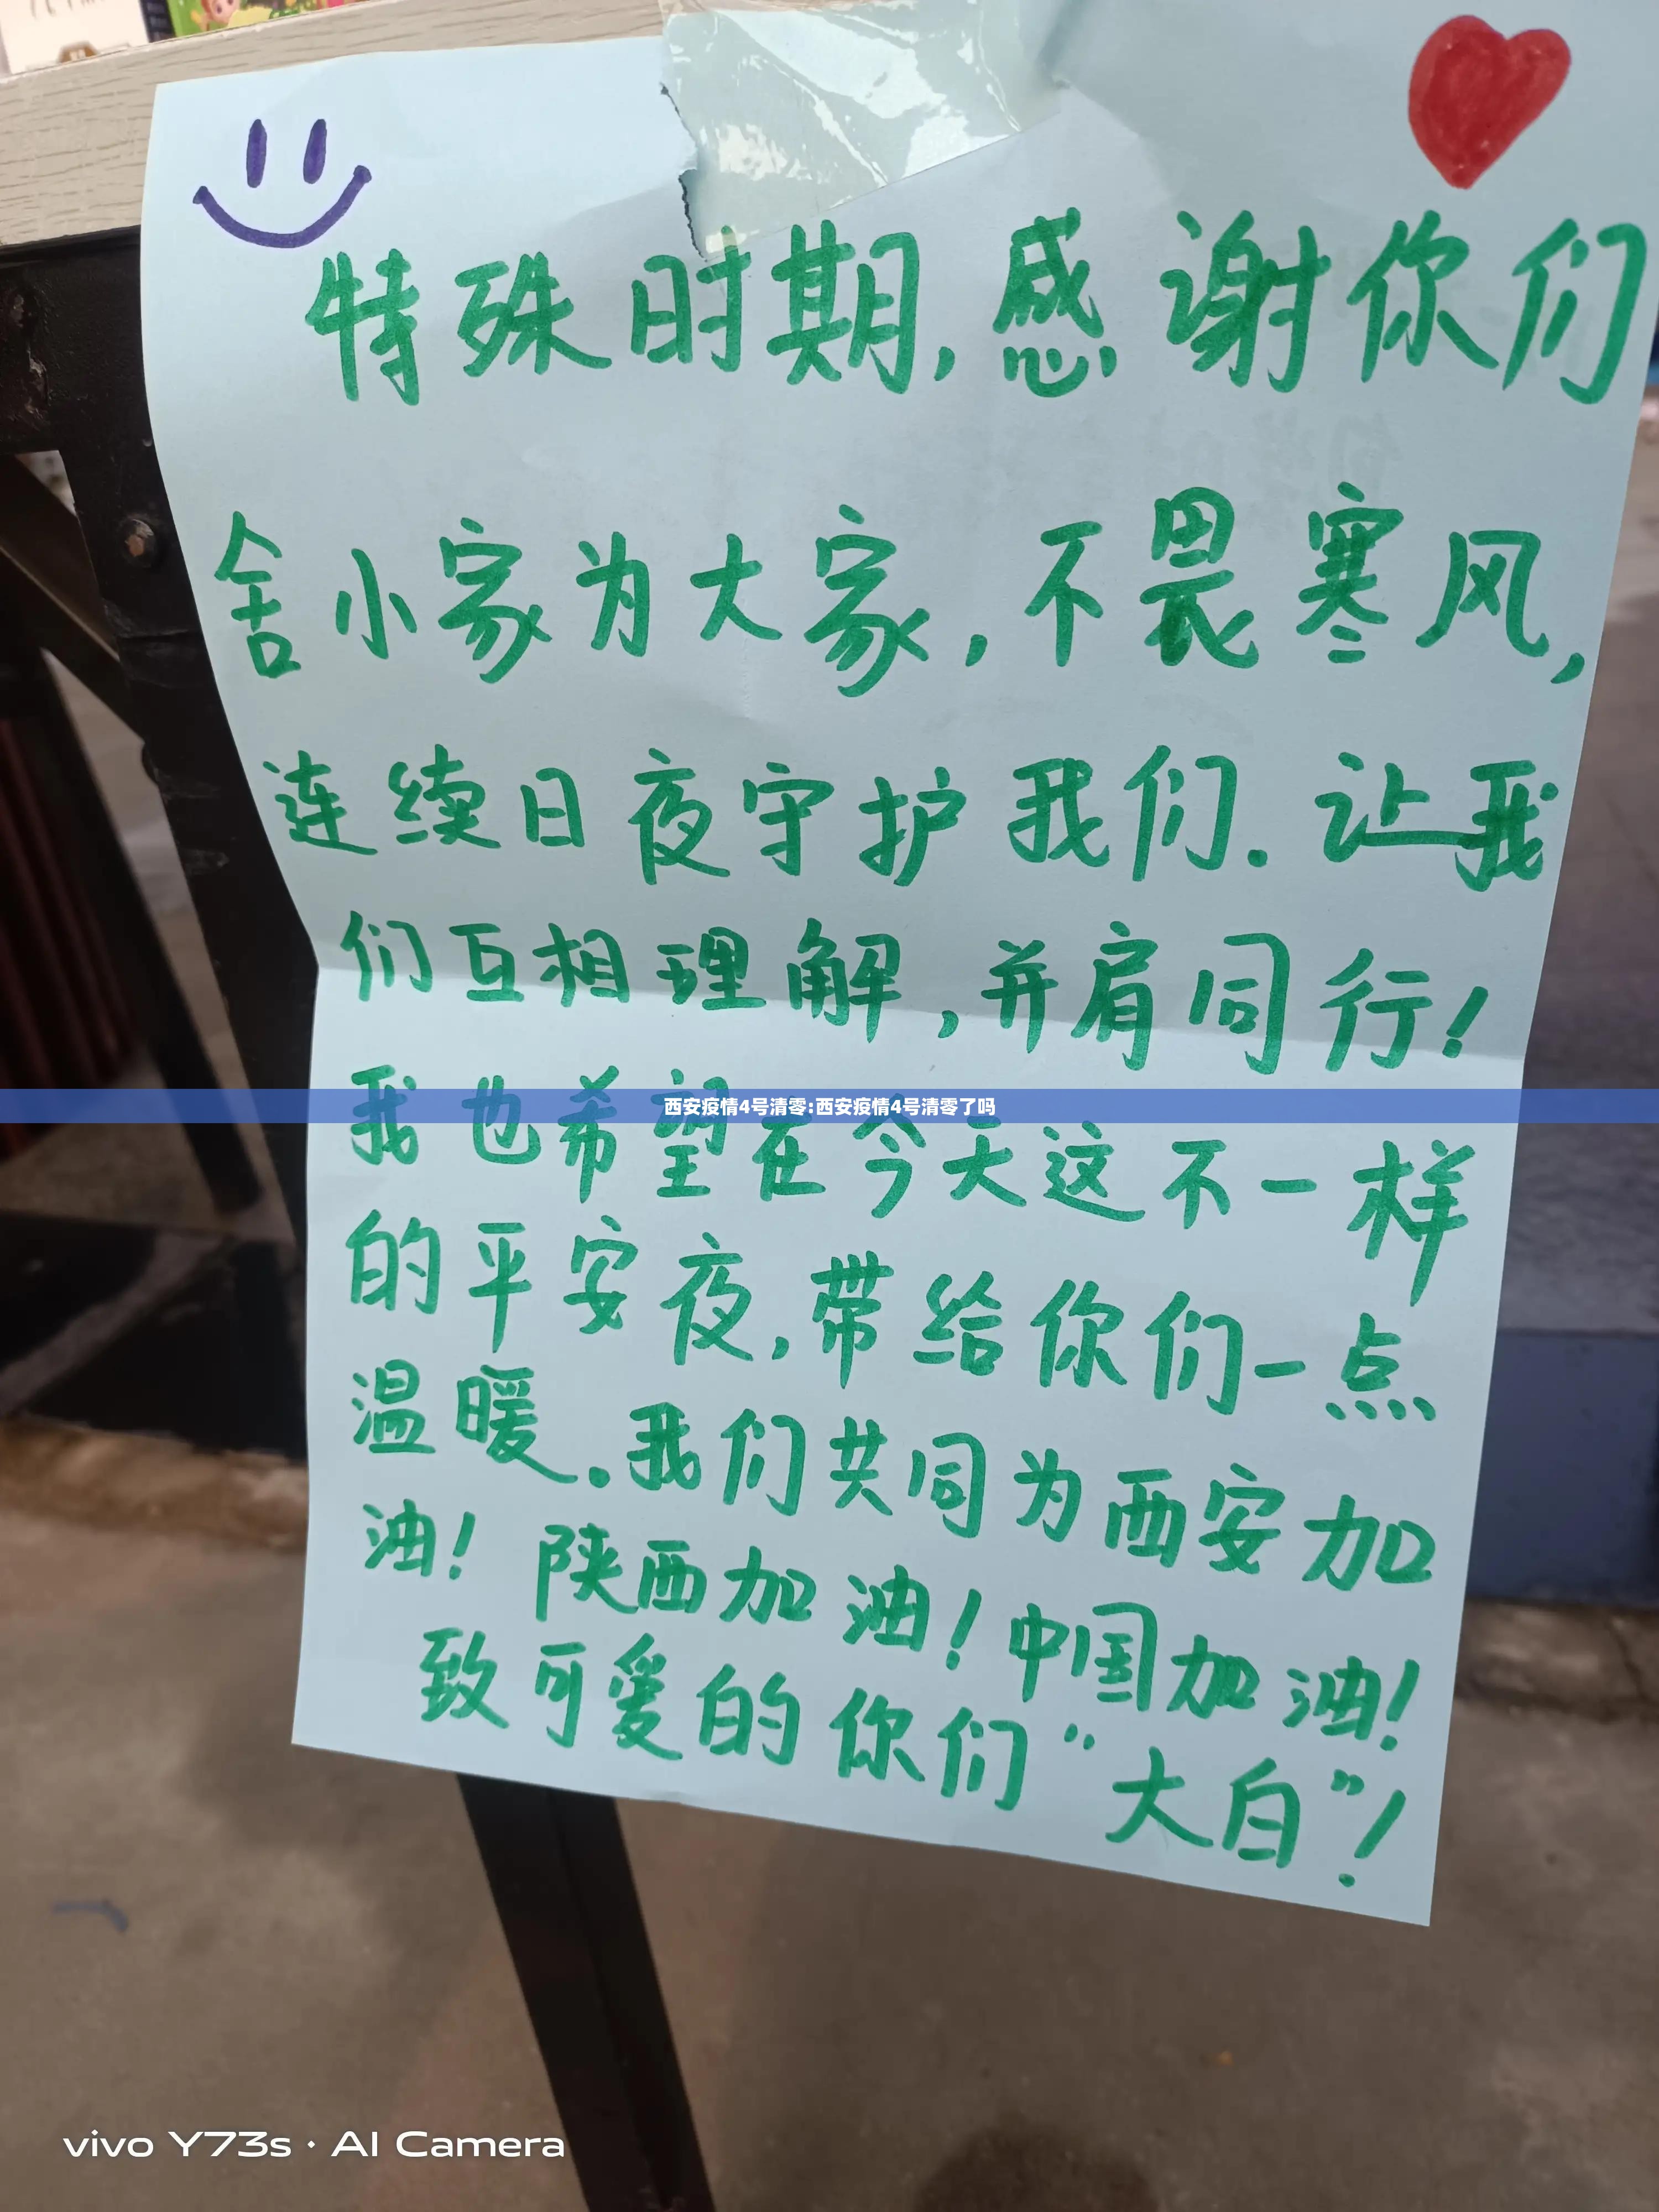 特殊时期,感谢你们
舍小家为大家,不畏寒风,
连续日夜守护我们.让我
们互相理解,并肩同行!
我也希望在今天这不一样
西安疫情4号清零:西安疫情4号清零了吗
的平安夜,带给你们一点
温暖.我们共同为西安加
油!陕西加油!中国加油!
致可爱的你们"大白"!
vivo Y73s · AI Camera